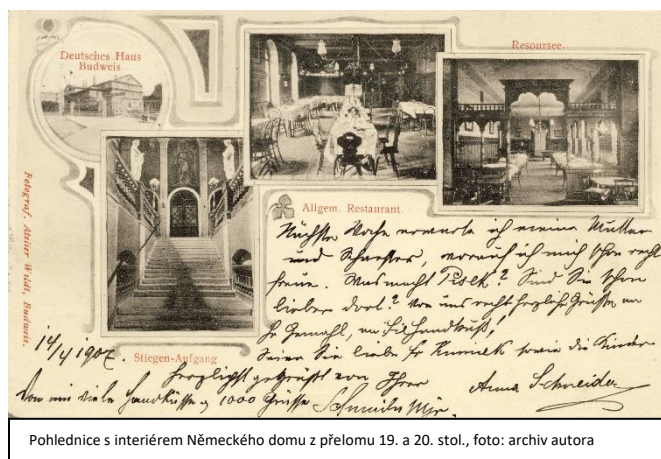 Deutsches Haus
Budweis.
Resoursee.
Allgem. Restaurant.
Fotograf. Atelier Wildt, Budweis.
Stiegen-Aufgang
Nächste Woche erwarte ich meine Mutter
und Schwester, worauf ich mich schon recht
freue. Was macht Pisek? Sind Sie schon
lieber dort? Von uns recht herzliche Grüsse an
Gemahl,
Seien Sie liebe Fr sowie die Kinder
14/4 1902.
herzlichst gegrüßt von Ihrer
Anna Schneider
Von mir viele Handküsse 1000 Grüsse
Pohlednice s interiérem Německého domu z přelomu 19. a 20. stol., foto: archiv autora